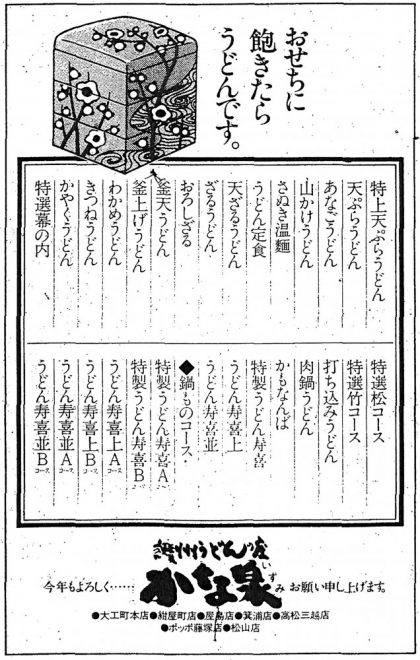 おせちに
飽きたら
うどんです。
特上天ぷらうどん
天ぷらうどん
あなごうどん
山かけうどん
さぬき温麺
うどん定食
天ざるうどん
ざるうどん
おろしざる
釜天うどん
釜上げうどん
わかめうどん
きつねうどん
かやくうどん
特選幕の内
特選松コース
特選竹コース
打ち込みうどん
肉鍋うどん
かもなんば
特製うどん寿喜
うどん寿喜上
うどん寿喜並
◆鍋ものコース・
特製うどん寿喜Aコース
特製うどん寿喜Bコース
うどん寿喜上Aコース
うどん寿喜上Bコース
うどん寿喜並Aコース
うどん寿喜並Bコース
讃州うどんの庄
今年もよろしく…… かな泉 いずみ お願い申し上げます。
●大工町本店●紺屋町店●屋島店●箕浦店●高松三越店
●ポッポ藤塚店●松山店